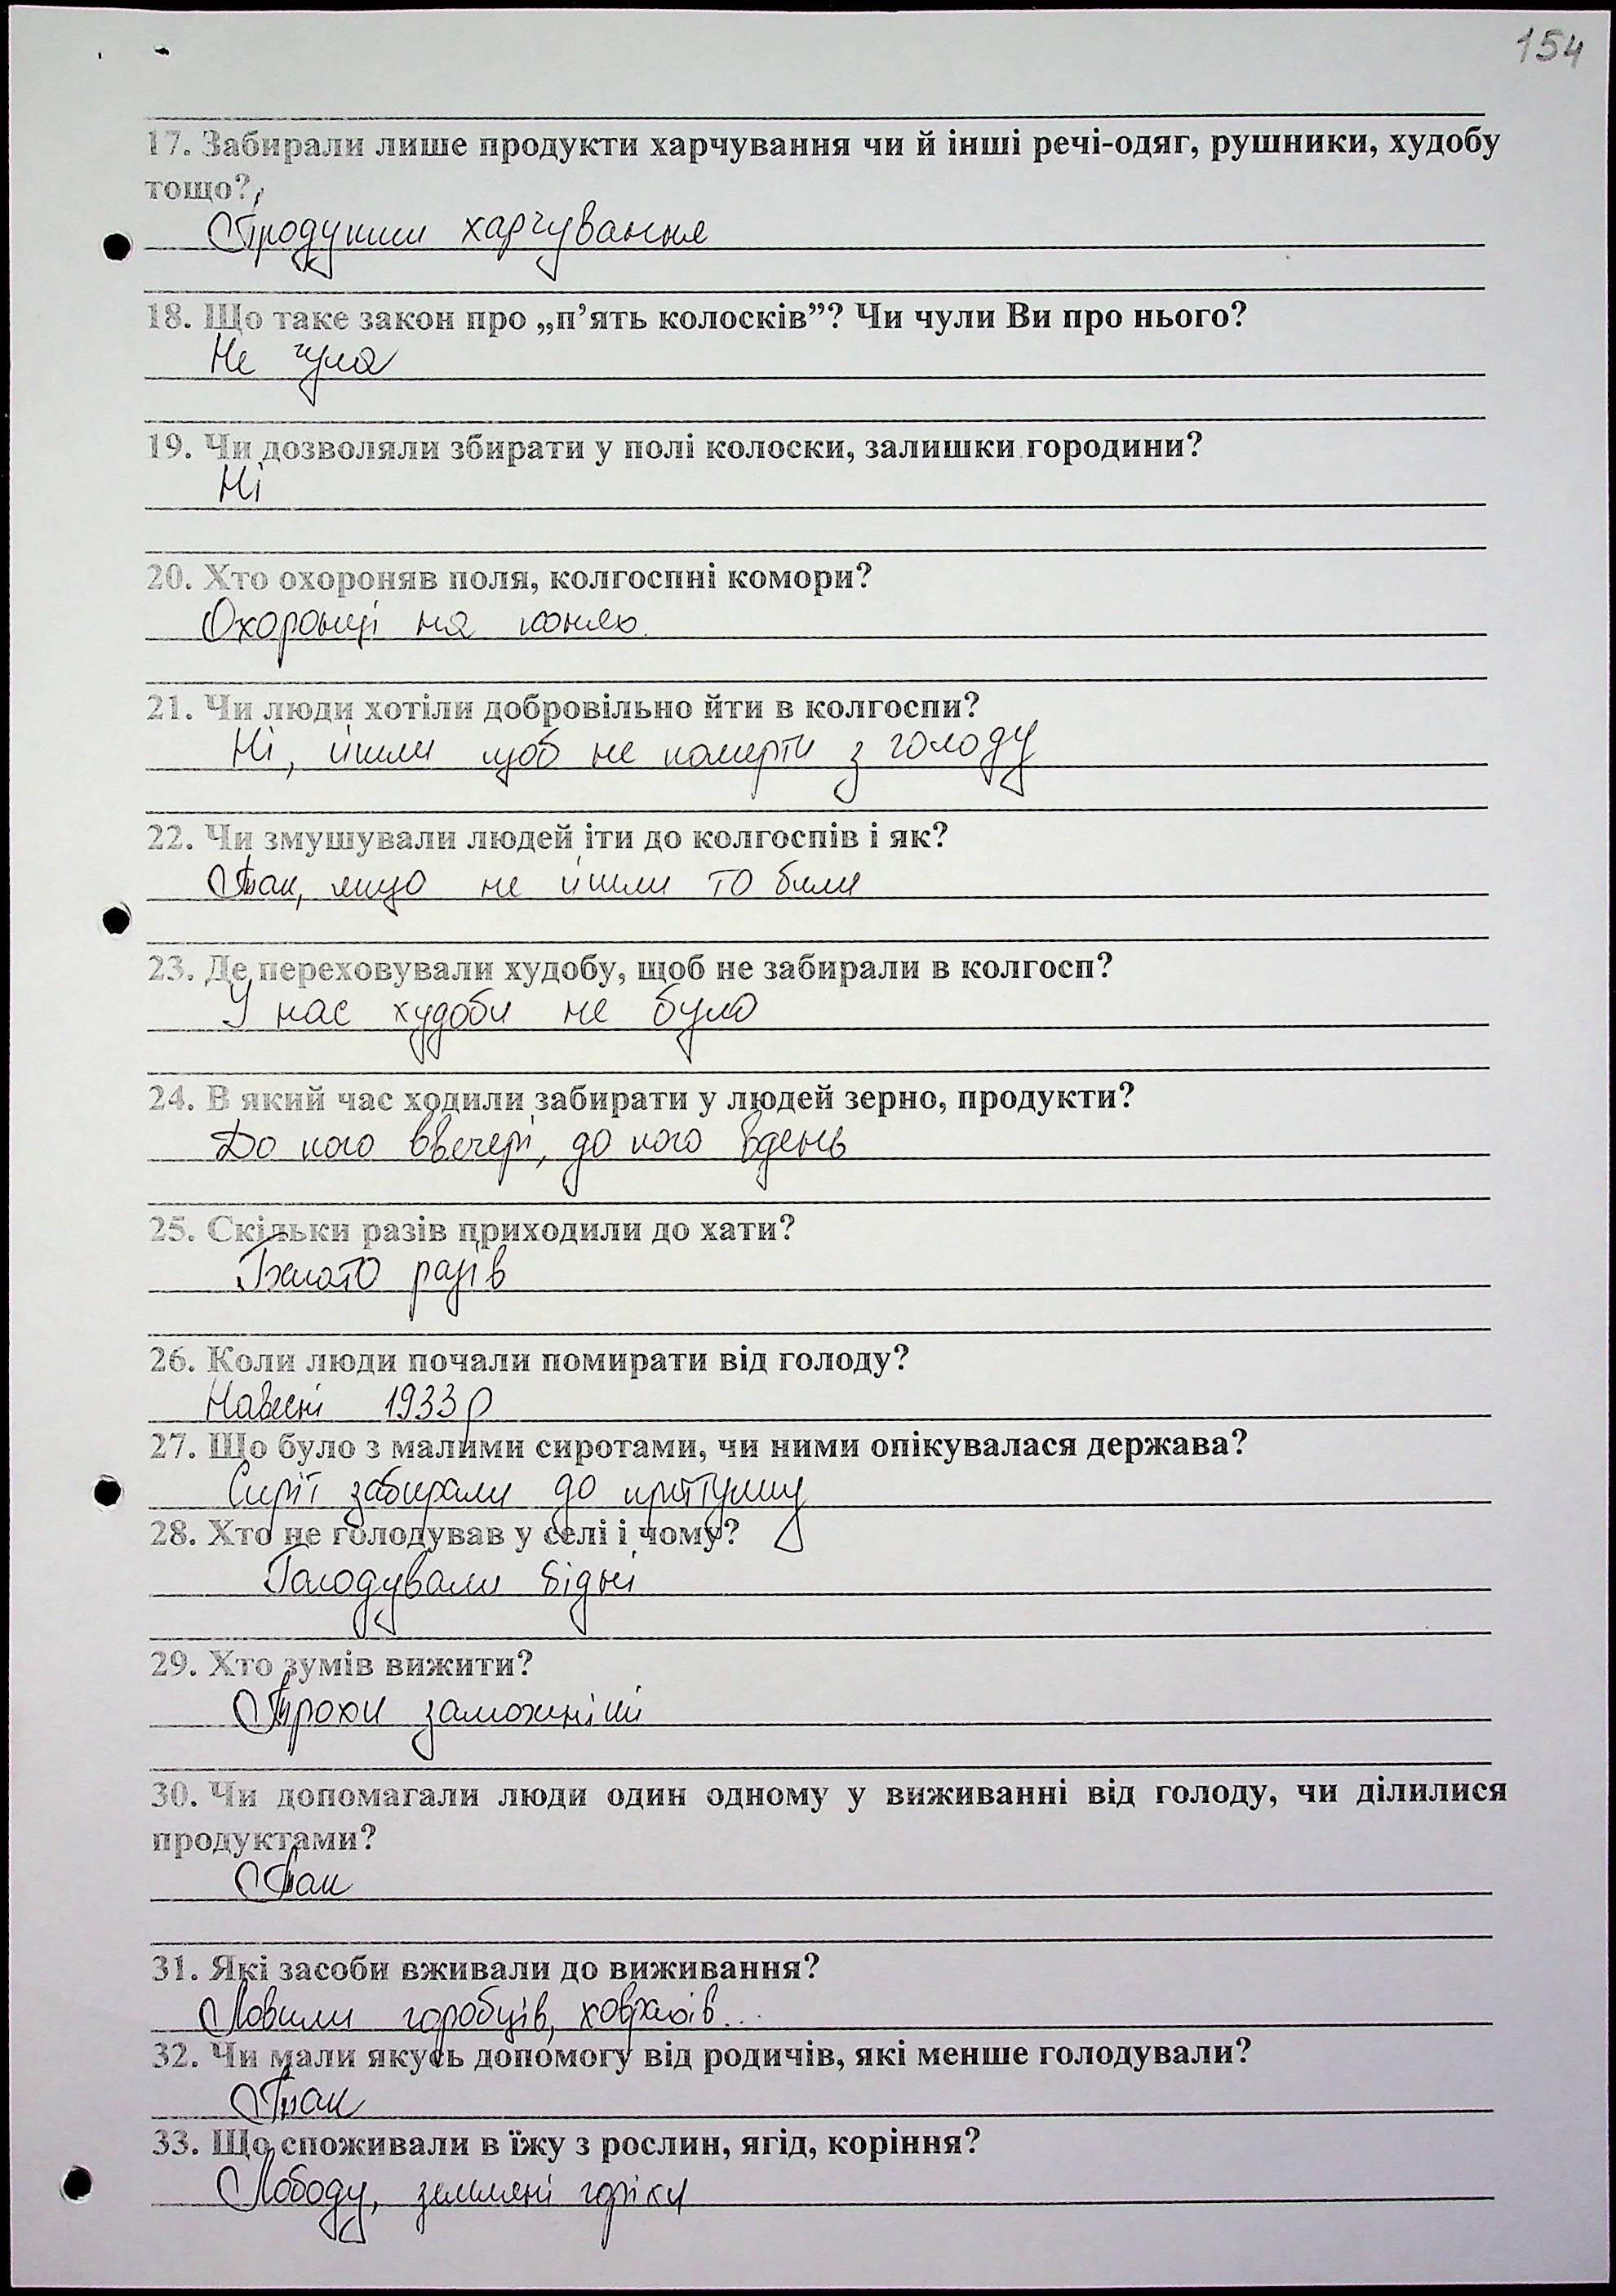 154
17. Забирали лише продукти харчування чи й інші речі-одяг, рушники, худобу
тощо?
Продукти харчування
18. Що таке закон про „п’ять колосків”? Чи чули Ви про нього?
Не чула
19. Чи дозволяли збирати у полі колоски, залишки городини?
Ні
20. Хто охороняв поля, колгоспні комори?
Охоронці на конях
21. Чи люди хотіли добровільно йти в колгоспи?
Ні, йшли щоб не померти з голоду
22. Чи змушували людей іти до колгоспів і як?
Так, якщо не йшли то били
23. Де переховували худобу, щоб не забирали в колгосп?
У нас худоби не було
24. В який час ходили забирати у людей зерно, продукти?
До кого ввечері, до кого вдень
25. Скільки разів приходили до хати?
Багато разів
26. Коли люди почали помирати від голоду?
Навесні 1933р
27. Що було з малими сиротами, чи ними опікувалася держава?
Сиріт забирали до притулку
28. Хто не голодував у селі і чому?
Голодували бідні
29. Хто зумів вижити?
Трохи заможніші
30. Чи допомагали люди один одному у виживанні від голоду, чи ділилися
продуктами?
Так
31. Які засоби вживали до виживання?
Ловили горобців, ховрахів...
32. Чи мали якусь допомогу від родичів, які менше голодували?
Так
33. Що споживали в їжу з рослин, ягід, коріння?
Лободу, земляні горіхи